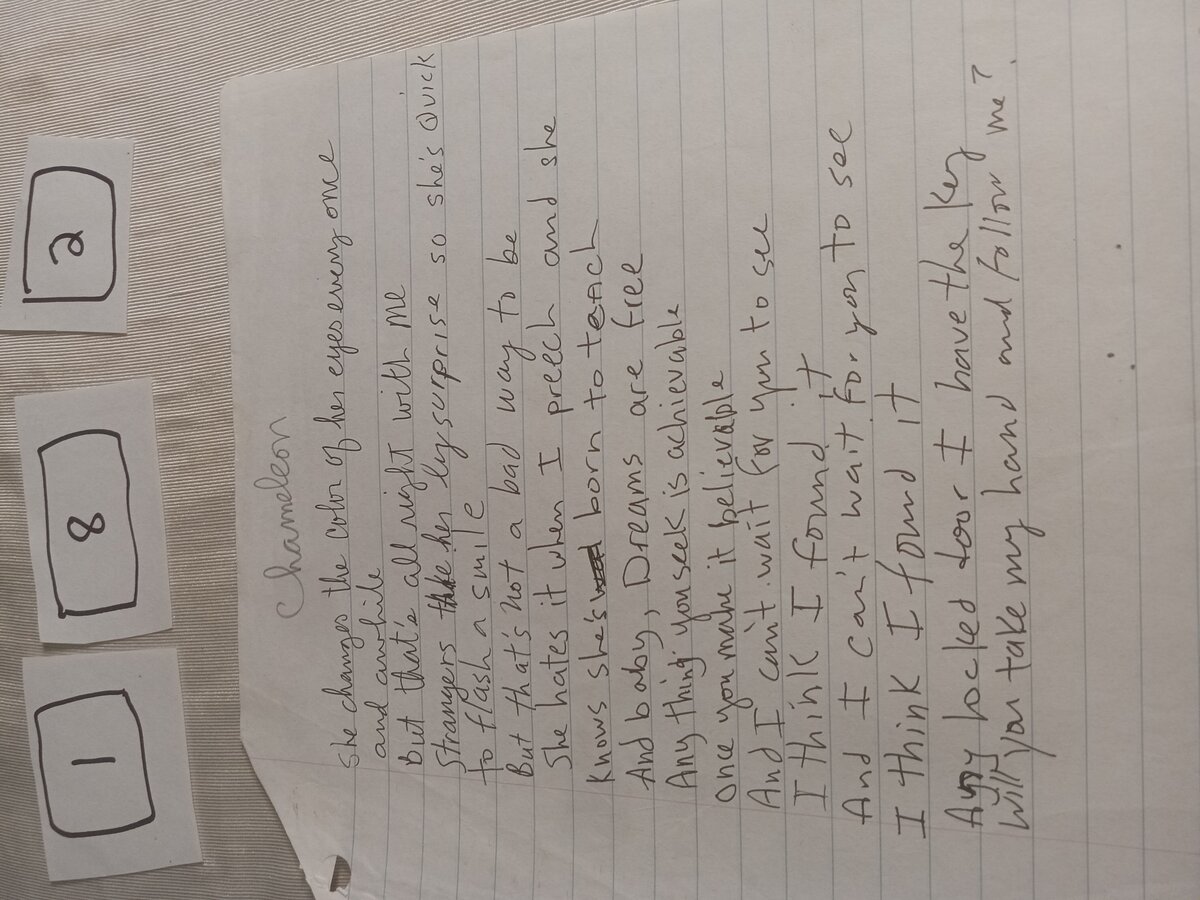 1 8 2
Chameleon
She changes the color of her eyes every one
and awhile
But that's all right with me
Strangers take her by surprise so she's Quick
to flash a smile
But that's not a bad way to be
She hates it when I preech and she
Knows she's born to teach
And baby, Dreams are free
Any thing you seek is achievable
Once you make it believable
And I can't wait for you to see
I think I found it
And I can't wait for you to see
I think I found it
Any locked door I have the key
Will you take my hand and follow me?